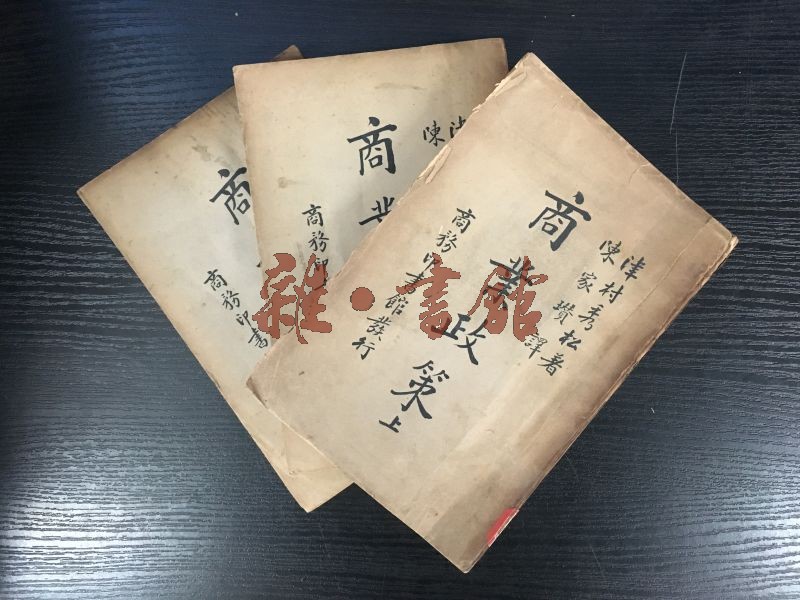 津村秀松著
陳家瓚譯
商業政策上
商務印書館發行
津
陳
商業
商務印
商
商務印書
雜·書館